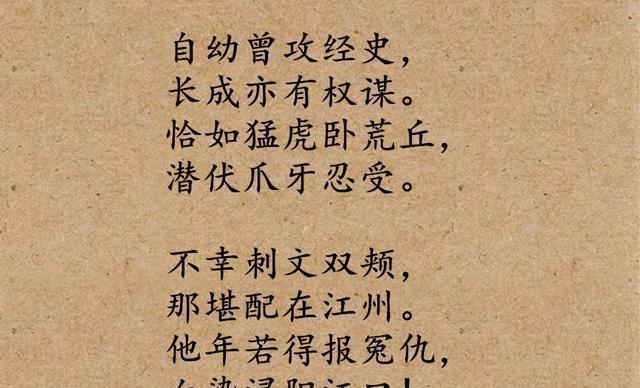 自幼曾攻经史，
长成亦有权谋。
恰如猛虎卧荒丘，
潜伏爪牙忍受。
不幸刺文双颊，
那堪配在江州。
他年若得报冤仇，
血染浔阳江口！